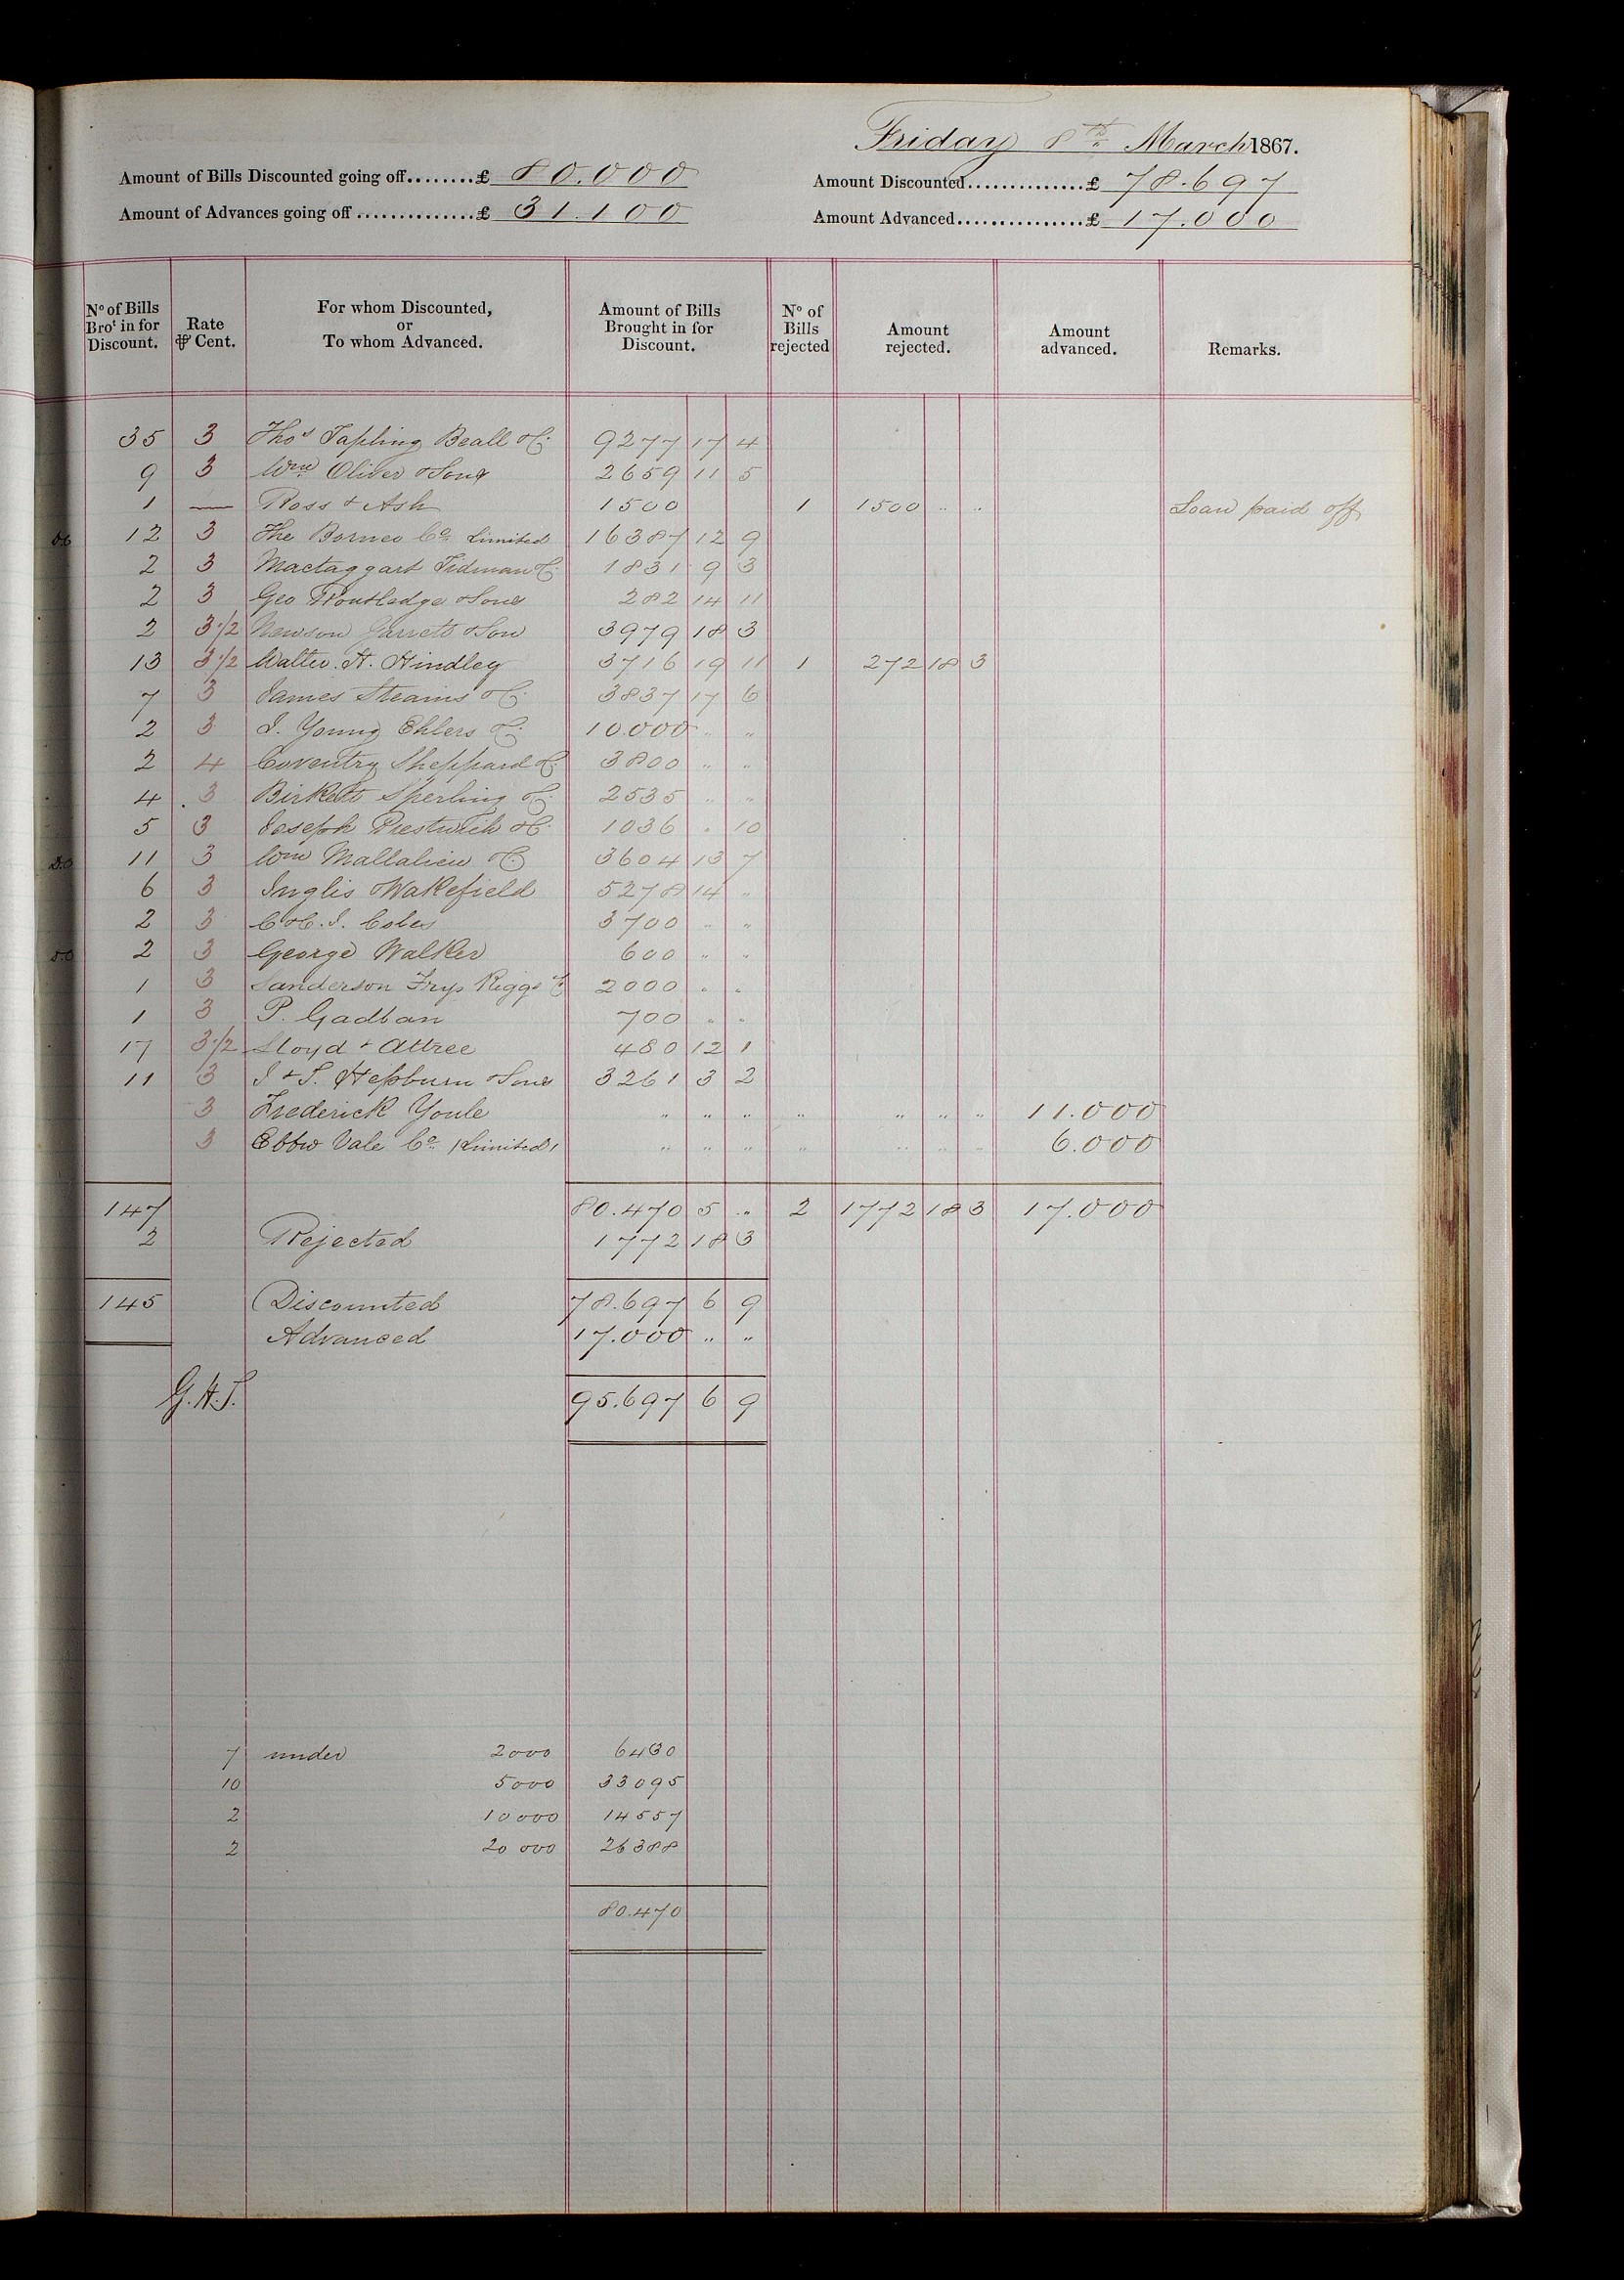 Friday 8th March 1867.
Amount of Bills Discounted going off........£ 80.000
Amount Discounted..............£ 78.697
Amount of Advances going off..............£ 31.100
Amount Advanced...............£ 17.000
No of Bills Brot in for Discount. | Rate ⅌ Cent. | For whom Discounted, or To whom Advanced. | Amount of Bills Brought in for Discount. | No of Bills rejected | Amount rejected. | Amount advanced. | Remarks.
35 3 Thos Tapling Beall & Co 9277 17 4
9 3 Wm Oliver & Sons 2659 11 5
1 — Ross & Ash 1500 1 1500 " " Loan paid off
12 3 The Borneo Co Limited 16387 12 9
2 3 Mactaggart Tidman & Co 1831 9 3
2 3 Geo Routledge & Sons 282 14 11
2 3 1/2 Newson Garrett & Son 3979 18 3
13 3 1/2 Walter H. Hindley 3716 19 11 1 272 18 3
7 3 James Steains & Co 3837 17 6
2 3 J. Young Ehlers & Co 10.000 " "
2 4 Coventry Sheppard & Co 3800 " "
4 3 Birkett Sperling & Co 2535 " "
5 3 Joseph Prestwich & Co 1036 " 10
11 3 Wm Mallalieu & Co 3604 13 7
6 3 Inglis & Wakefield 5278 14 "
2 3 C & C. J. Coles 3700 " "
2 3 George Walker 600 " "
1 3 Sanderson Frys Riggs & Co 2000 " "
1 3 P. Gadban 700 " "
17 3 1/2 Lloyd & Attree 480 12 1
11 3 J & T. Hepburn & Sons 3261 3 2
3 Frederick Youle " " " " " " " 11.000
3 Ebbw Vale Co (Limited) " " " " " " " 6.000
147 80.470 5 " 2 1772 18 3 17.000
2 Rejected 1772 18 3
145 Discounted 78.697 6 9
Advanced 17.000 " "
G.H.T. 95.697 6 9
7 under 2000 6430
10 5000 33095
2 10000 14557
2 20 000 26388
80.470